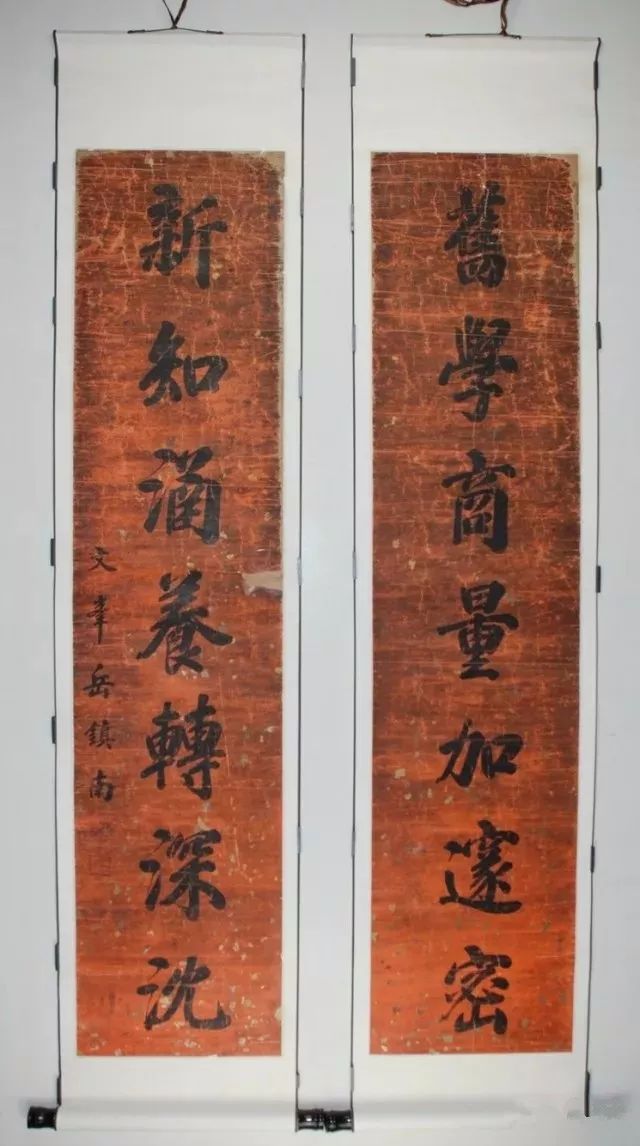 舊學商量加邃密
新知涵養轉深沈
文峯岳鎮南